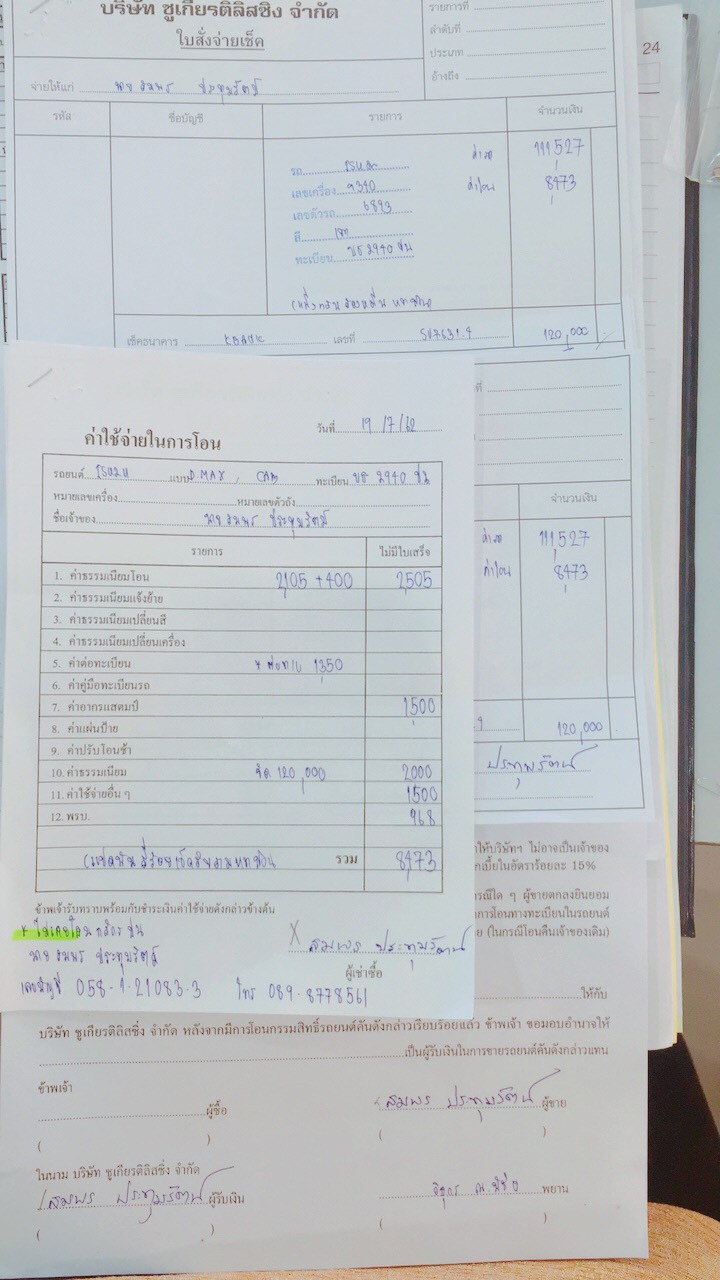 บริษัท ชูเกียรติลิสซิ่ง จำกัด
ใบสั่งจ่ายเช็ค
รายการที่
ลำดับที่
ประเภท
อ้างถึง
24
จ่ายให้แก่ นาย สมพร ประทุมรัตน์
รหัส ชื่อบัญชี รายการ จำนวนเงิน
รถ ISUZU ค่ารถ 111,527
เลขเครื่อง 9340 ค่าโอน 8473
เลขตัวรถ 6893
สี เทา
ทะเบียน บธ 2940 ชน
(หนึ่งแสนสองหมื่นบาทถ้วน)
เช็คธนาคาร KBANK เลขที่ 120,000
ที่
จำนวนเงิน
ค่ารถ 111,527
ค่าโอน 8473
120,000
ประทุมรัตน์
วันที่ 19/7/62
ค่าใช้จ่ายในการโอน
รถยนต์ ISUZU แบบ D.MAX, CAB ทะเบียน บธ 2940 ชน
หมายเลขเครื่อง หมายเลขตัวถัง
ชื่อเจ้าของ นาย สมพร ประทุมรัตน์
รายการ ไม่มีใบเสร็จ
1. ค่าธรรมเนียมโอน 2,105 +400 2,505
2. ค่าธรรมเนียมแจ้งย้าย
3. ค่าธรรมเนียมเปลี่ยนสี
4. ค่าธรรมเนียมเปลี่ยนเครื่อง
5. ค่าต่อทะเบียน 1,350
6. ค่าคู่มือทะเบียนรถ
7. ค่าอากรแสตมป์ 1,500
8. ค่าแผ่นป้าย
9. ค่าปรับโอนช้า
10. ค่าธรรมเนียม จัด 120,000 2000
11. ค่าใช้จ่ายอื่น ๆ 1500
12. พรบ. 968
(แปดพันสี่ร้อยเจ็ดสิบสามบาทถ้วน) รวม 8,473
ข้าพเจ้ารับทราบพร้อมกับชำระเงินค่าใช้จ่ายดังกล่าวข้างต้น
* ไม่เคยโอน กสิกร ชน
X สมพร ประทุมรัตน์
นาย สมพร ประทุมรัตน์
ผู้เช่าซื้อ
เลขบัญชี 058-1-21083-3 โทร 089-8778561
ให้บริษัทฯ ไม่อาจเป็นเจ้าของ
เบี้ยในอัตราร้อยละ 15%
กรณีใด ๆ ผู้ขายตกลงยินยอม
การโอนทางทะเบียนในรถยนต์
(ในกรณีโอนคืนเจ้าของเดิม)
ให้กับ
บริษัท ชูเกียรติลิสซิ่ง จำกัด หลังจากมีการโอนกรรมสิทธิ์รถยนต์คันดังกล่าวเรียบร้อยแล้ว ข้าพเจ้า ขอมอบอำนาจให้
เป็นผู้รับเงินในการขายรถยนต์คันดังกล่าวแทน
ข้าพเจ้า
ผู้ซื้อ สมพร ประทุมรัตน์ ผู้ขาย
( ) ( )
ในนาม บริษัท ชูเกียรติลิสซิ่ง จำกัด
สมพร ประทุมรัตน์ ผู้รับเงิน พยาน
( ) ( )